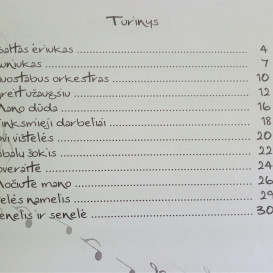 Turinys
altas ėriukas ........ 4
unjukas ........ 7
uostabus orkestras ........ 10
greit užaugsiu ........ 12
Mano dūda ........ 16
inksmieji darbeliai ........ 18
vi vištelės ........ 20
abalų šokis ........ 22
overaitė ........ 24
Močiute mano ........ 26
elės namelis ........ 29
enelis ir senelė ........ 30